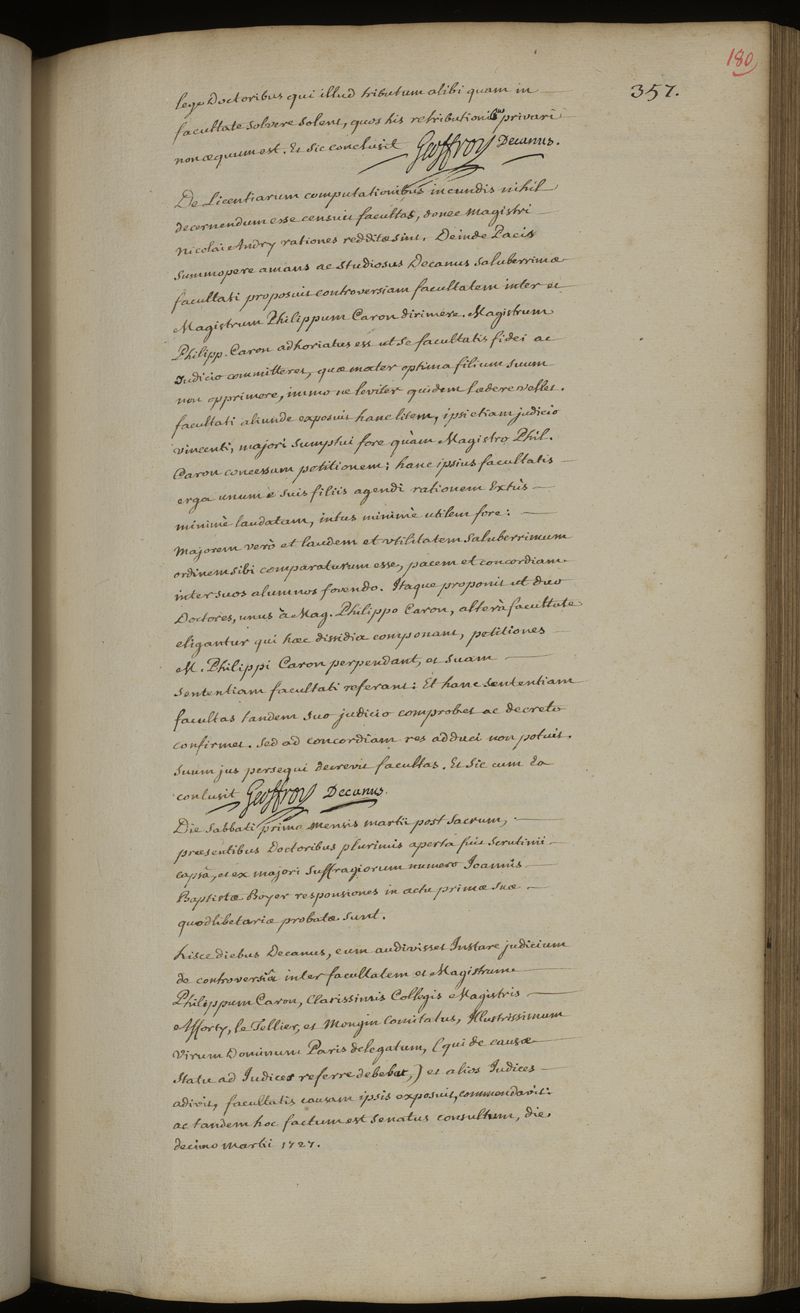 180
357.
lege Doctoribus qui illud tributum alibi quam in
facultate solvere solent, quos his retributionibus privari
non æquum est. Et sic conclusit Geoffroy Decanus.
De Licentiarum computationibus ineundis nihil
decernendum esse censuit facultas, donec Magistri
Nicolai Andry rationes redditæ sint. Deinde Pacis
summopere amans ac studiosus Decanus saluberrimæ
facultati proposuit controversiam facultatem inter et
Magistrum Philippum Caron dirimere. Magistrum
Philipp. Caron adhortatus est ut se facultatis fidei ac
Judicio committeret, quæ mater optima filium suum
non opprimere, immo ne leviter quidem lædere vellet.
facultati aliunde exposuit hanc litem, ipsi etiam judicio
vincenti, majori sumptui fore quàm Magistro Phil.
Caron concessam petitionem; hanc ipsius facultatis
erga unum è suis filiis agendi rationem Extùs
minimè laudatam, intus minimè utilem fore:
Majorem verò et laudem et utilitatem saluberrimum
ordinem sibi comparaturum esse, pacem et concordiam
inter suos alumnos fovendo. Itaque proponit ut duo
Doctores, unus à Mag. Philippo Caron, alter à facultate
eligantur qui hæc dissidia componant, petitiones
M. Philippi Caron perpendant, et suam
sententiam facultati referant: Et hanc sententiam
facultas tandem suo judicio comprobet ac decreto
confirmet. Sed ad concordiam res adduci non potuit.
Suum jus persequi decrevit facultas. Et sic cum Ea
conlusit Geoffroy Decanus.
Die Sabbati primo Mensis martii post sacrum,
præsentibus Doctoribus plurimis aperta fuit scrutinii
capsa, et ex majori suffragiorum numero Joannis
Baptistæ Boyer responsiones in actu primæ suæ
quodlibetariæ probatæ sunt.
hisce diebus Decanus, cum audivisset Instare judicium
de controversiâ inter facultatem et Magistrum
Philippum Caron, Clarissimis Collegis Magistris
Afforty, le Tellier, et Mongin Comitatus, Illustrissimum
Virum Dominum Paris delegatum, (qui de causæ
statu ad Judices referre debebat,) et alios Judices
adivit, facultatis causam ipsis exposuit, commendavit:
ac tandem hoc factum est senatus consultum, die
decimo martii 1727.